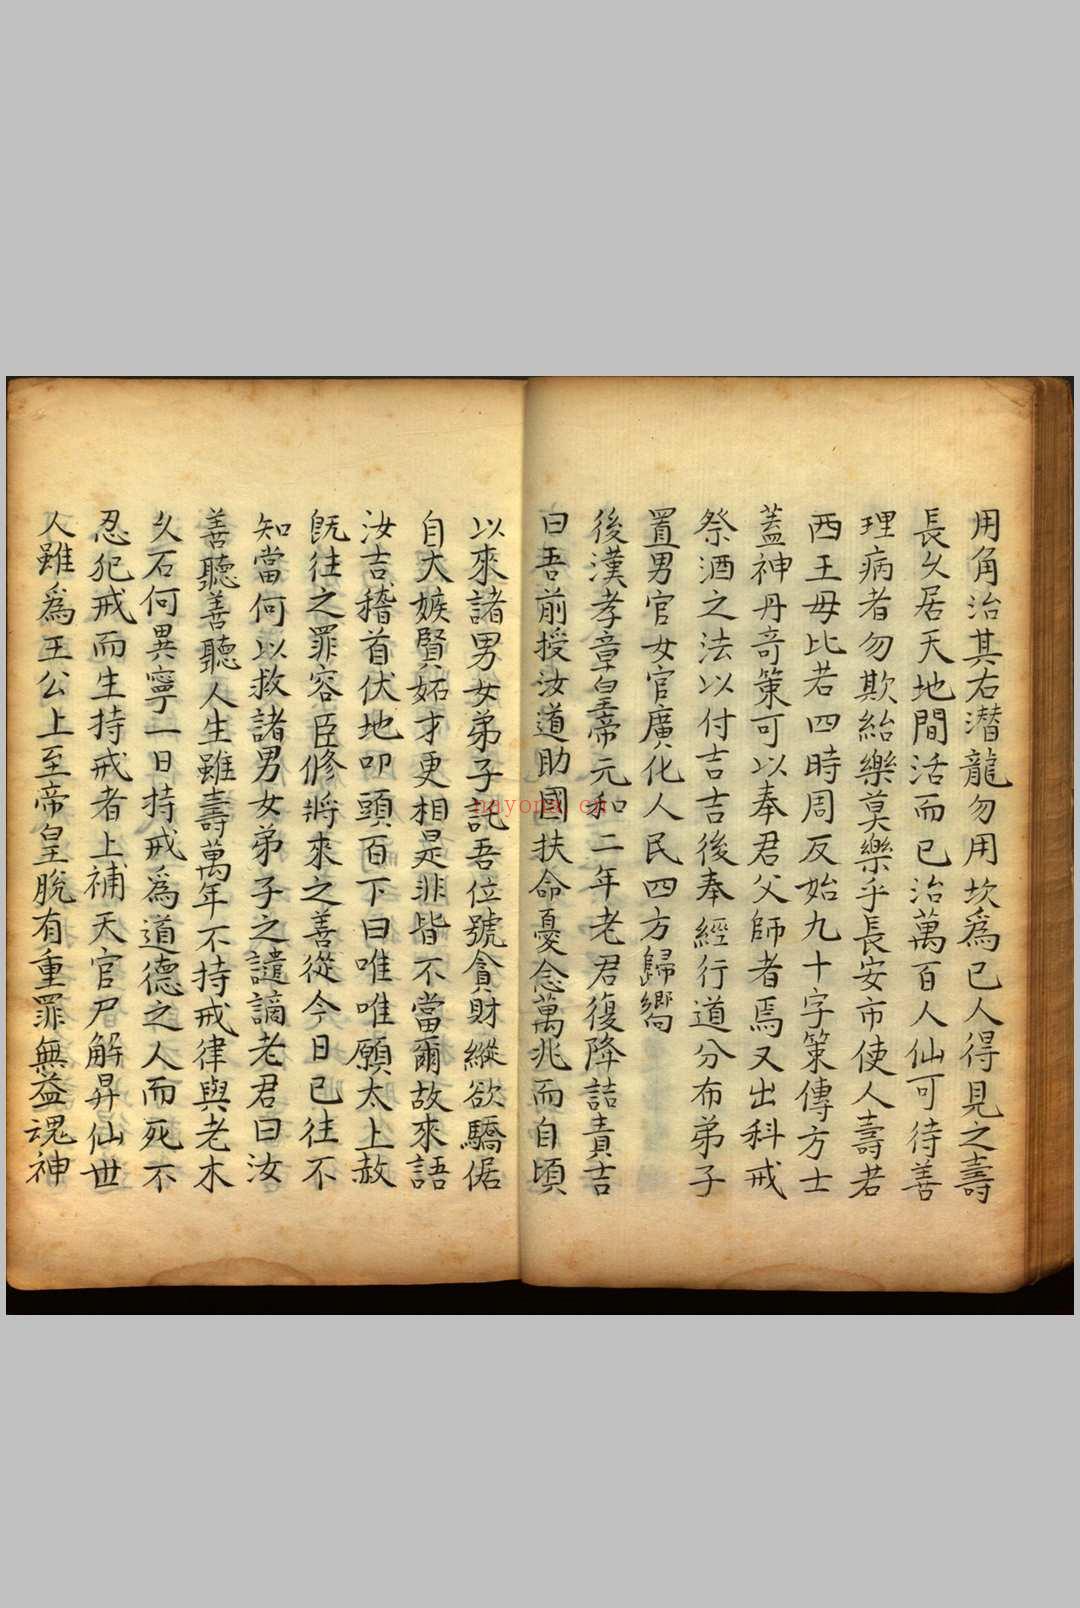 用角治其右潛龍勿用坎為已人得見之壽
長久居天地間活而已治萬百人仙可待善
理病者勿欺紿樂莫樂乎長安市使人壽若
西王母比若四時周反始九十字策傳方士
蓋神丹奇策可以奉君父師者焉又出科戒
祭酒之法以付吉吉後奉經行道分布弟子
置男官女官廣化人民四方歸嚮
後漢孝章皇帝元和二年老君復降詰責吉
曰吾前授汝道助國扶命憂念萬兆而自頃
以來諸男女弟子託吾位號貪財縱欲驕倨
自大嫉賢妬才更相是非皆不當爾故來語
汝吉稽首伏地叩頭百下曰唯唯願太上赦
既往之罪容臣修將來之善從今日已往不
知當何以救諸男女弟子之譴謫老君曰汝
善聽善聽人生雖壽萬年不持戒律與老木
久石何異寧一日持戒為道德之人而死不
忍犯戒而生持戒者上補天官尸解昇仙世
人雖為王公上至帝皇脫有重罪無益魂神
nayona.cn